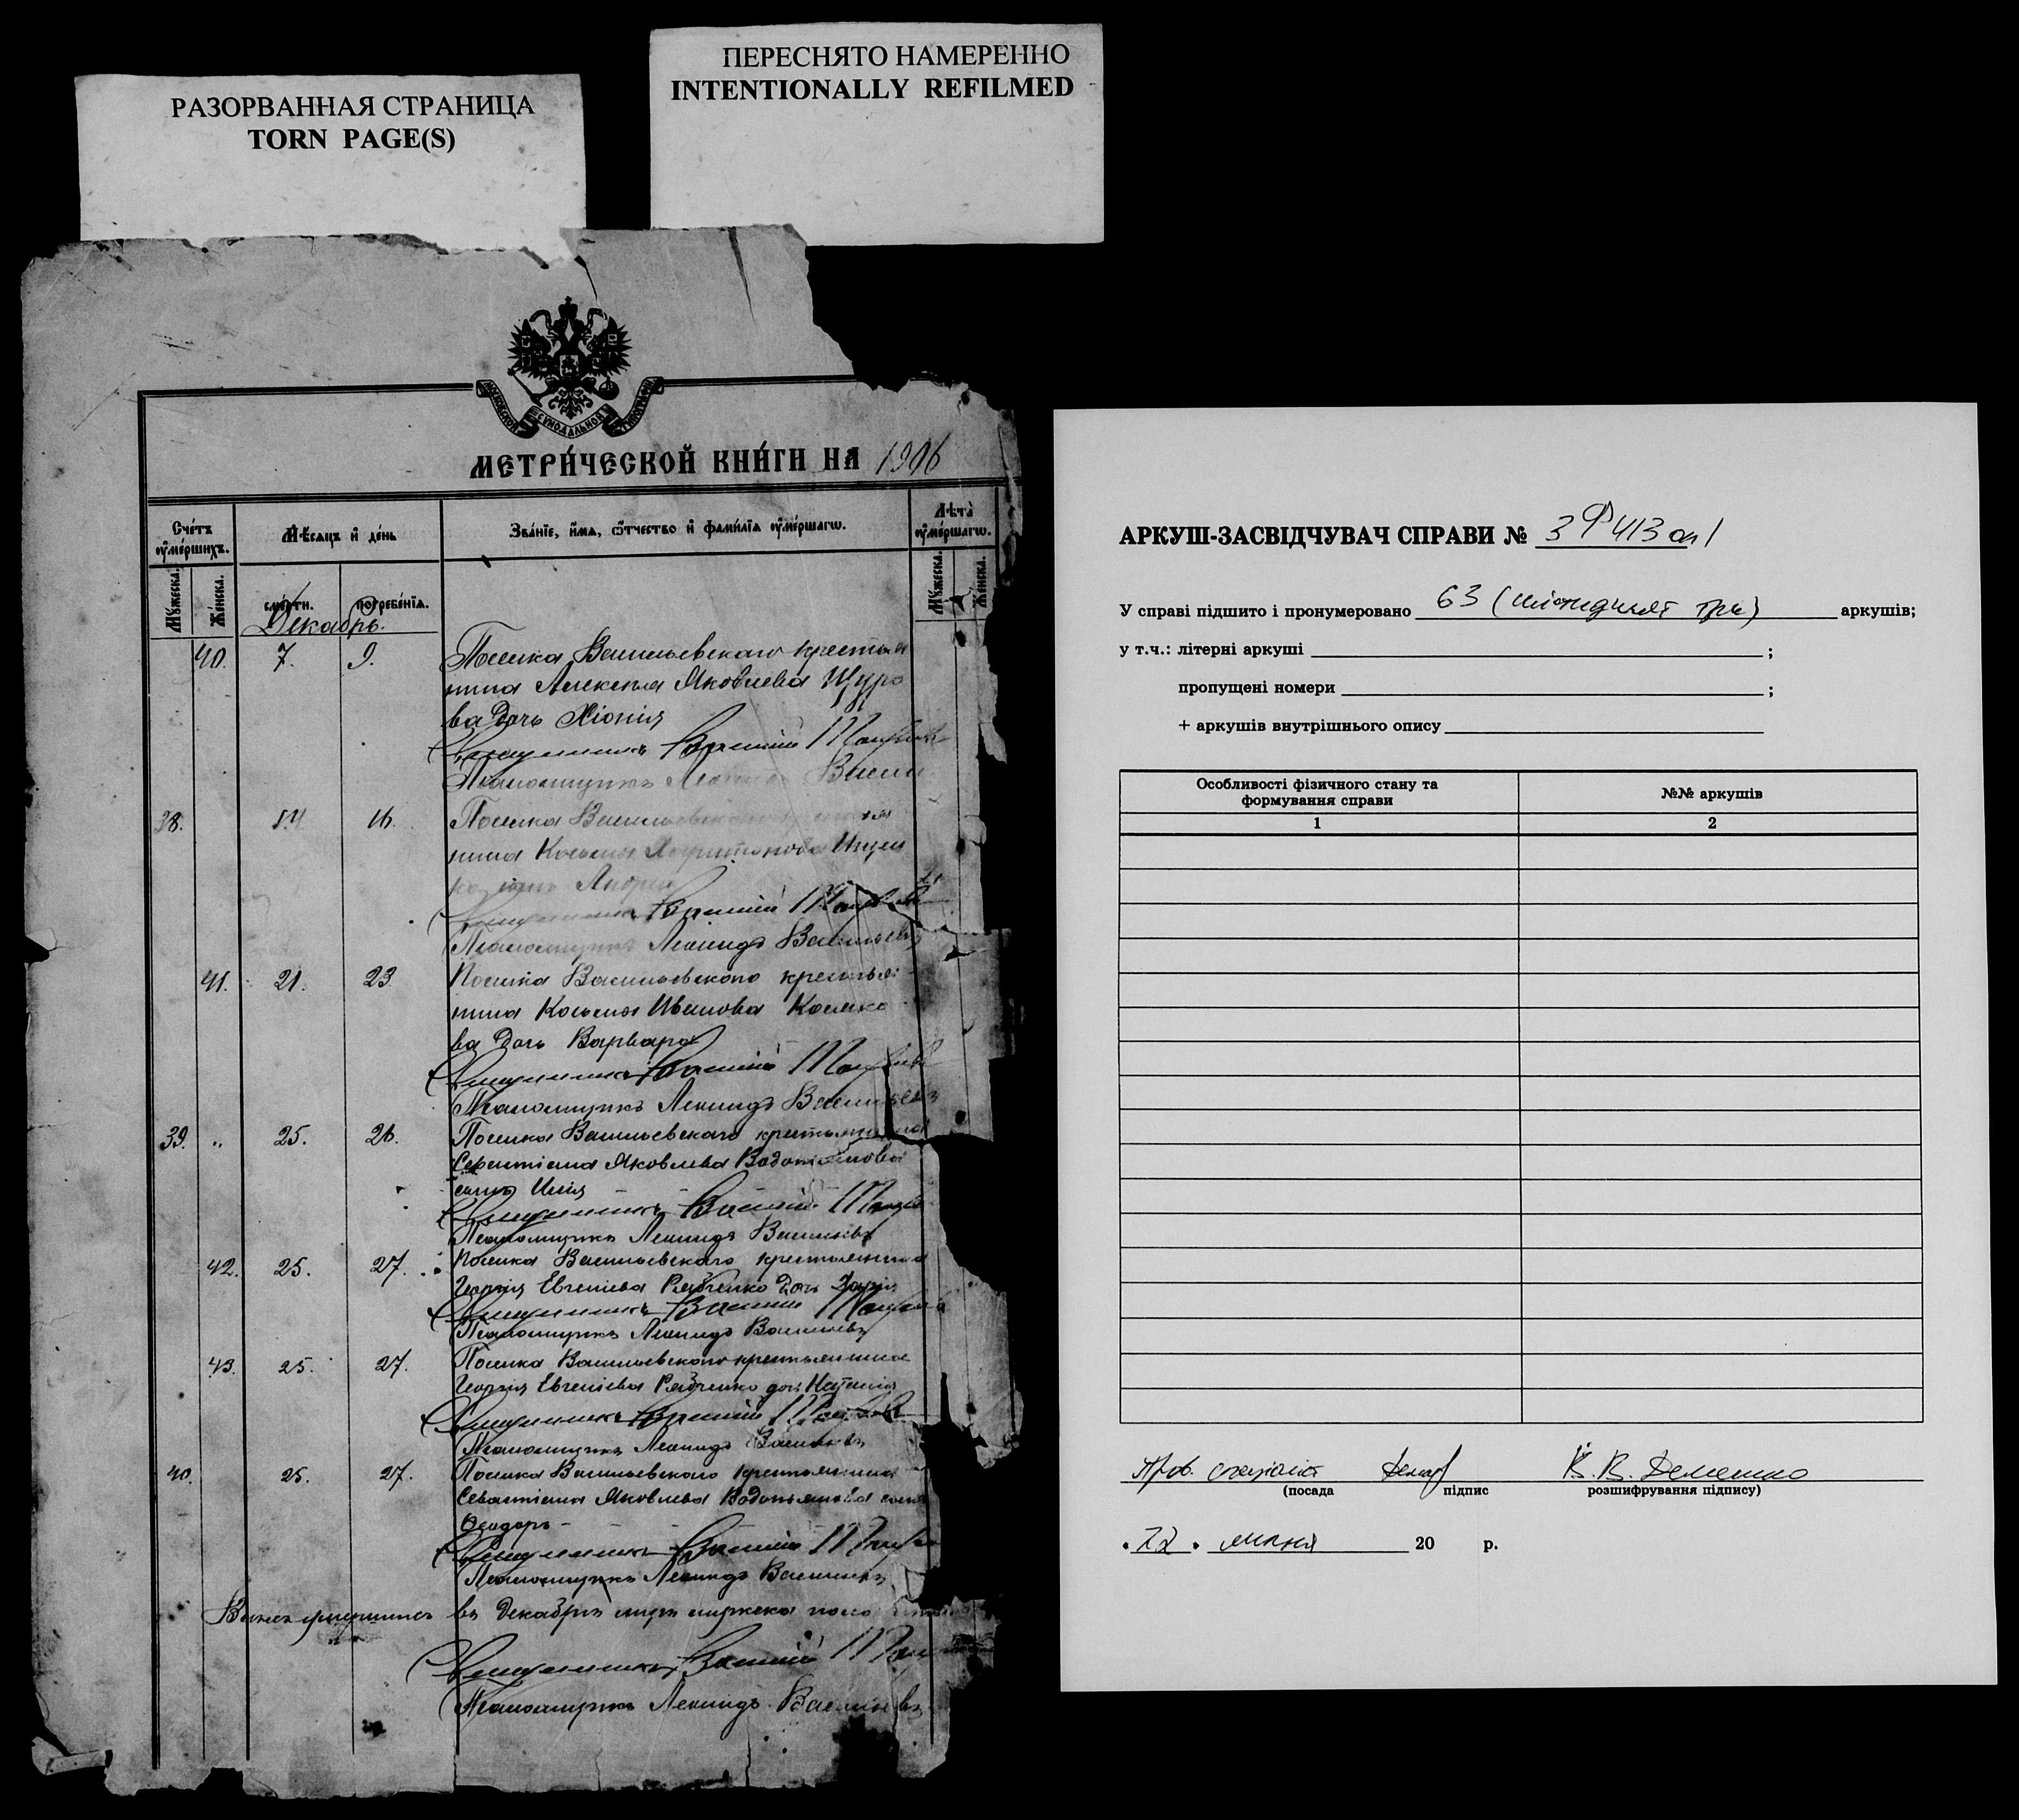 РАЗОРВАННАЯ СТРАНИЦА
TORN PAGE(S)
ПЕРЕСНЯТО НАМЕРЕННО
INTENTIONALLY REFILMED
МЕТРИ́ЧЕСКОЙ КНИ́ГИ НА 1906
Сче́тъ оу҆ме́ршихъ.
Мѣ́сяцъ и҆ де́нь
Зва́нїе, и҆́мѧ, ѻ҆́тчество и҆ фами́лїѧ оу҆ме́ршагѡ.
Лѣта̀ оу҆ме́ршагѡ.
Мꙋ́жеска.
Же́нска.
сме́рти.
погребе́нїѧ.
Мꙋ́жеска.
Же́нска.
Декабрь.
40. 7. 9. Поселка Васильевскаго крестья
нина Алексея Яковлева Щуро
ва дочь Хіонія
Священникъ Василій
Псаломщикъ Леонидъ Василь
38. 14 16. Поселка Васильевскаго
нина Косьмы Харитонова
сынъ Андрей
Священникъ Василій
Псаломщикъ Леонидъ Васильевъ
41. 21. 23. Поселка Васильевскаго крестья
нина Косьмы Иванова
ва дочь Варвара
Священникъ Василій
Псаломщикъ Леонидъ Васильевъ
39. „ 25. 26. Поселка Васильевскаго крестьянина
Севастіана Яковлева Водопьянова
сынъ Илія
Священникъ Василій
Псаломщикъ Леонидъ Васильевъ
42. 25. 27. Поселка Васильевскаго крестьянина
Георгія Евгеніева Рябченко дочь Дарія
Священникъ Василій
Псаломщикъ Леонидъ Васильевъ
43. 25. 27. Поселка Васильевскаго крестьянина
Георгія Евгеніева Рябченко дочь Наталія
Священникъ Василій
Псаломщикъ Леонидъ Васильевъ
40. 25. 27. Поселка Васильевскаго крестьянина
Севастіана Яковлева Водопьянова сынъ
Ѳеодоръ
Священникъ Василій
Псаломщикъ Леонидъ Васильевъ
Всехъ умершихъ въ Декабрѣ мужеска пола
Священникъ Василій
Псаломщикъ Леонидъ Васильевъ
АРКУШ-ЗАСВІДЧУВАЧ СПРАВИ № 3 Ф 413 оп 1
У справі підшито і пронумеровано 63 (шістдесят три) аркушів;
у т.ч.: літерні аркуші ;
пропущені номери ;
+ аркушів внутрішнього опису
Особливості фізичного стану та формування справи
№№ аркушів
1
2
Пров. спеціаліст В. В. Деменко
(посада підпис розшифрування підпису)
22 липня 20 р.